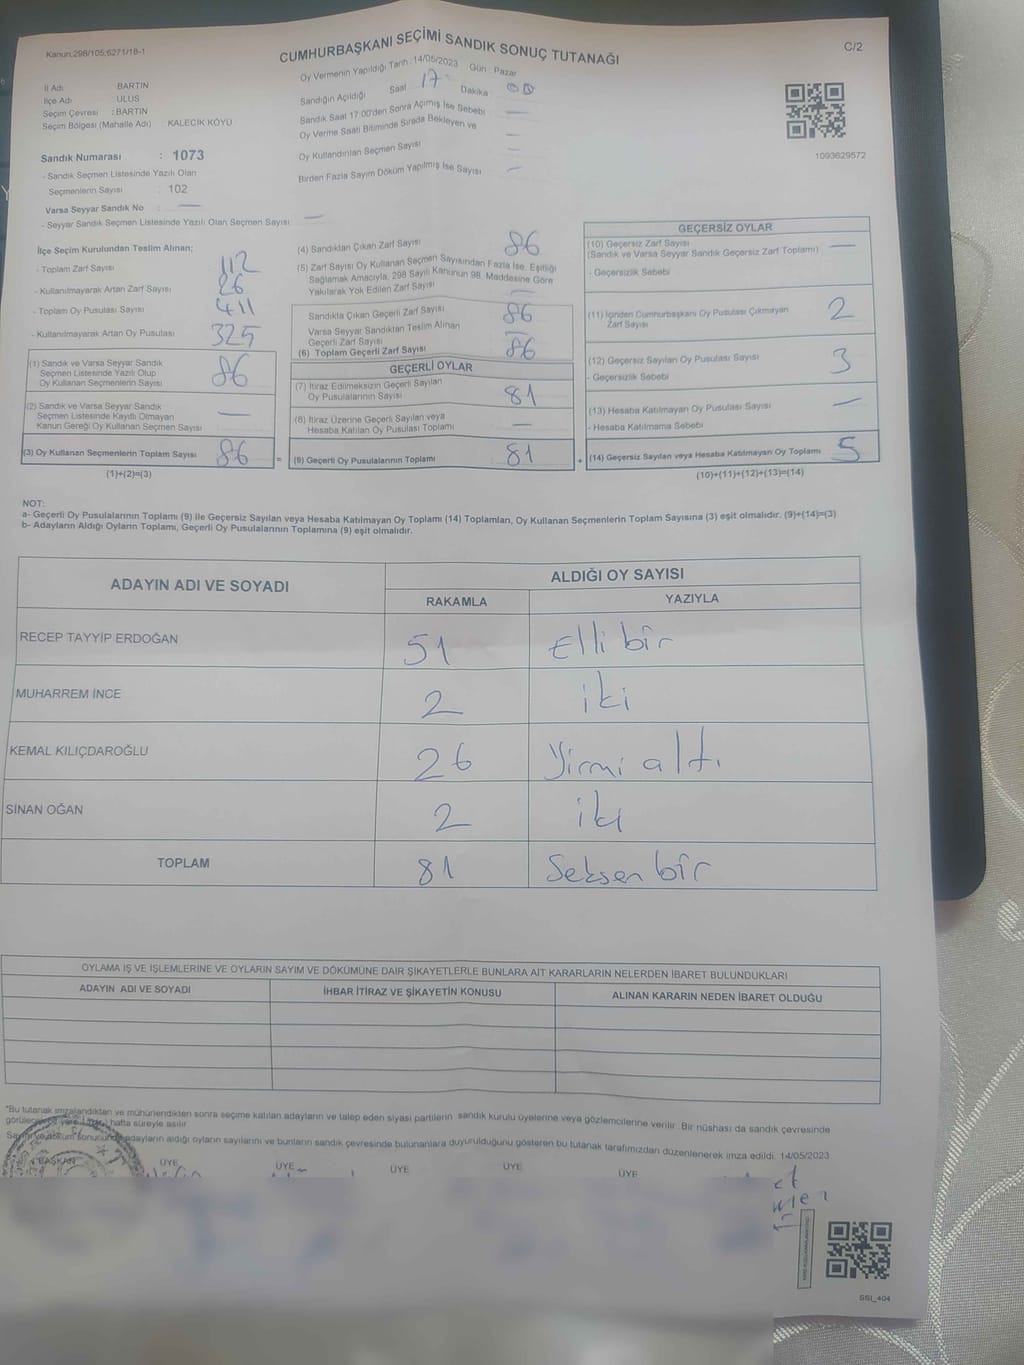 Kanun:298/105;6271/18-1
CUMHURBAŞKANI SEÇİMİ SANDIK SONUÇ TUTANAĞI
C/2
Oy Vermenin Yapıldığı Tarih :14/05/2023 Gün : Pazar
İl Adı BARTIN
İlçe Adı ULUS
Seçim Çevresi : BARTIN
Seçim Bölgesi (Mahalle Adı) : KALECİK KÖYÜ
Sandığın Açıldığı Saat 17 Dakika 00
Sandık Saat 17:00'den Sonra Açılmış İse Sebebi —
Oy Verme Saati Bitiminde Sırada Bekleyen ve
Oy Kullandırılan Seçmen Sayısı —
Birden Fazla Sayım Döküm Yapılmış İse Sayısı —
1093629572
Sandık Numarası : 1073
- Sandık Seçmen Listesinde Yazılı Olan
Seçmenlerin Sayısı : 102
Varsa Seyyar Sandık No : —
- Seyyar Sandık Seçmen Listesinde Yazılı Olan Seçmen Sayısı: —
İlçe Seçim Kurulundan Teslim Alınan;
- Toplam Zarf Sayısı 112
- Kullanılmayarak Artan Zarf Sayısı 26
- Toplam Oy Pusulası Sayısı 411
- Kullanılmayarak Artan Oy Pusulası 325
(1) Sandık ve Varsa Seyyar Sandık
Seçmen Listesinde Yazılı Olup
Oy Kullanan Seçmenlerin Sayısı 86
(2) Sandık ve Varsa Seyyar Sandık
Seçmen Listesinde Kayıtlı Olmayan
Kanun Gereği Oy Kullanan Seçmen Sayısı —
(3) Oy Kullanan Seçmenlerin Toplam Sayısı 86
(1)+(2)=(3)
(4) Sandıktan Çıkan Zarf Sayısı 86
(5) Zarf Sayısı Oy Kullanan Seçmen Sayısından Fazla İse, Eşitliği
Sağlamak Amacıyla, 298 Sayılı Kanunun 98. Maddesine Göre
Yakılarak Yok Edilen Zarf Sayısı —
Sandıkta Çıkan Geçerli Zarf Sayısı 86
Varsa Seyyar Sandıktan Teslim Alınan
Geçerli Zarf Sayısı —
(6) Toplam Geçerli Zarf Sayısı 86
GEÇERLİ OYLAR
(7) İtiraz Edilmeksizin Geçerli Sayılan
Oy Pusulalarının Sayısı 81
(8) İtiraz Üzerine Geçerli Sayılan veya
Hesaba Katılan Oy Pusulası Toplamı —
= (9) Geçerli Oy Pusulalarının Toplamı 81
GEÇERSİZ OYLAR
(10) Geçersiz Zarf Sayısı —
(Sandık ve Varsa Seyyar Sandık Geçersiz Zarf Toplamı)
- Geçersizlik Sebebi
(11) İçinden Cumhurbaşkanı Oy Pusulası Çıkmayan
Zarf Sayısı 2
(12) Geçersiz Sayılan Oy Pusulası Sayısı 3
- Geçersizlik Sebebi
(13) Hesaba Katılmayan Oy Pusulası Sayısı —
- Hesaba Katılmama Sebebi
+ (14) Geçersiz Sayılan veya Hesaba Katılmayan Oy Toplamı 5
(10)+(11)+(12)+(13)=(14)
NOT:
a- Geçerli Oy Pusulalarının Toplamı (9) ile Geçersiz Sayılan veya Hesaba Katılmayan Oy Toplamı (14) Toplamları, Oy Kullanan Seçmenlerin Toplam Sayısına (3) eşit olmalıdır. (9)+(14)=(3)
b- Adayların Aldığı Oyların Toplamı, Geçerli Oy Pusulalarının Toplamına (9) eşit olmalıdır.
ADAYIN ADI VE SOYADI ALDIĞI OY SAYISI
RAKAMLA YAZIYLA
RECEP TAYYİP ERDOĞAN 51 Elli bir
MUHARREM İNCE 2 iki
KEMAL KILIÇDAROĞLU 26 Yirmi altı
SİNAN OĞAN 2 iki
TOPLAM 81 Seksen bir
OYLAMA İŞ VE İŞLEMLERİNE VE OYLARIN SAYIM VE DÖKÜMÜNE DAİR ŞİKAYETLERLE BUNLARA AİT KARARLARIN NELERDEN İBARET BULUNDUKLARI
ADAYIN ADI VE SOYADI İHBAR İTİRAZ VE ŞİKAYETİN KONUSU ALINAN KARARIN NEDEN İBARET OLDUĞU
*Bu tutanak imzalandıktan ve mühürlendikten sonra seçime katılan adayların ve talep eden siyasi partilerin sandık kurulu üyelerine veya gözlemcilerine verilir. Bir nüshası da sandık çevresinde
hafta süreyle asılır.
sonucunda adayların aldığı oyların sayılarını ve bunların sandık çevresinde bulunanlara duyurulduğunu gösteren bu tutanak tarafımızdan düzenlenerek imza edildi. 14/05/2023
BAŞKAN ÜYE ÜYE ÜYE ÜYE ÜYE
SSI_404